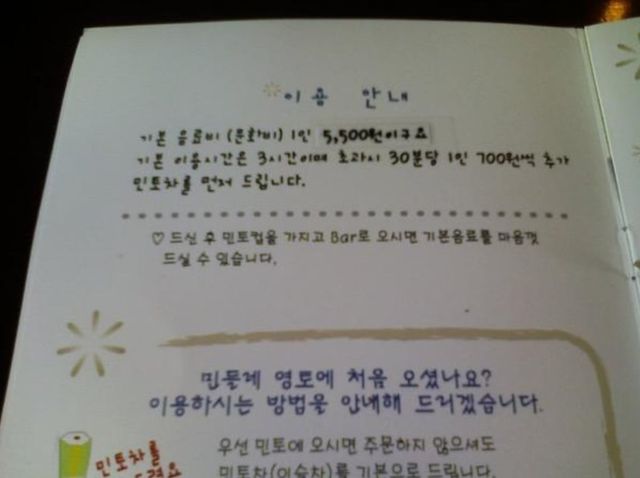 이용 안내
기본 음료비 (문화비) 1인 5,500원이구요
기본 이용시간은 3시간이며 초과시 30분당 1인 700원씩 추가
민토차를 먼저 드립니다.
♡ 드신 후 민토컵을 가지고 Bar로 오시면 기본음료를 마음껏
드실 수 있습니다.
민들레 영토에 처음 오셨나요?
이용하시는 방법을 안내해 드리겠습니다.
민토차를
우선 민토에 오시면 주문하지 않으셔도
민토차(이슬차)를 기본으로 드립니다.